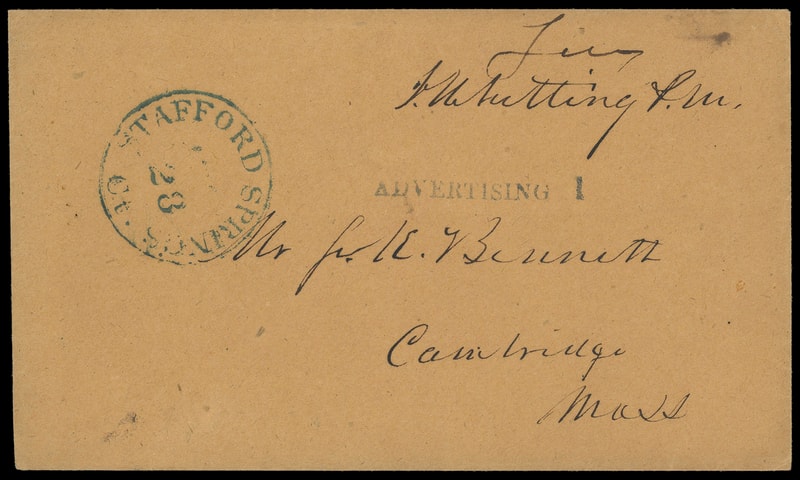 Free
Whitting P.M.
STAFFORD SPRINGS Ct.
23
ADVERTISING 1
Mr K. Bennett
Cambridge
Mass